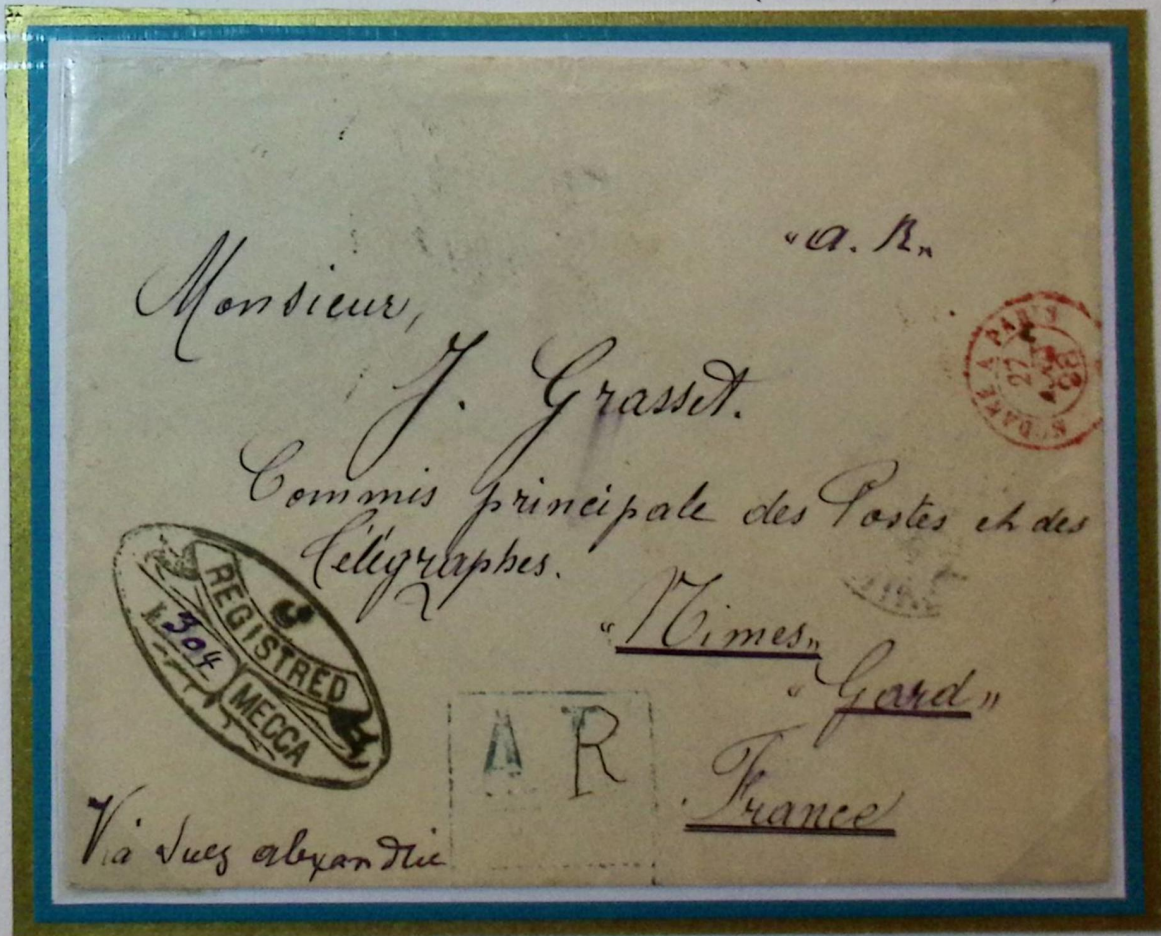 "A. R„
Monsieur,
J. Grasset.
Commis principale des Postes et des
Télégraphes.
"Nimes„
"Gard"
France
REGISTRED
304
MECCA
A R
Via Suez alexandrie
A PARIS
27
98